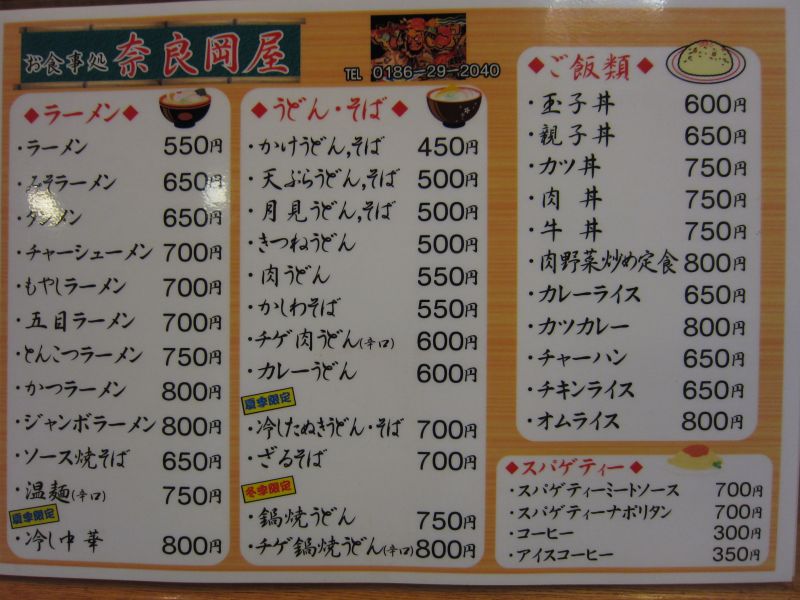 お食事処 奈良岡屋
TEL 0186-29-2040
◆ラーメン◆
・ラーメン 550円
・みそラーメン 650円
・タンメン 650円
・チャーシューメン 700円
・もやしラーメン 700円
・五目ラーメン 700円
・とんこつラーメン 750円
・かつラーメン 800円
・ジャンボラーメン 800円
・ソース焼そば 650円
・温麺(辛口) 750円
夏季限定
・冷し中華 800円
◆うどん・そば◆
・かけうどん,そば 450円
・天ぷらうどん,そば 500円
・月見うどん,そば 500円
・きつねうどん 500円
・肉うどん 550円
・かしわそば 550円
・チゲ肉うどん(辛口) 600円
・カレーうどん 600円
夏季限定
・冷したぬきうどん・そば 700円
・ざるそば 700円
冬季限定
・鍋焼うどん 750円
・チゲ鍋焼うどん(辛口) 800円
◆ご飯類◆
・玉子丼 600円
・親子丼 650円
・カツ丼 750円
・肉丼 750円
・牛丼 750円
・肉野菜炒め定食 800円
・カレーライス 650円
・カツカレー 800円
・チャーハン 650円
・チキンライス 650円
・オムライス 800円
◆スパゲティー◆
・スパゲティーミートソース 700円
・スパゲティーナポリタン 700円
・コーヒー 300円
・アイスコーヒー 350円